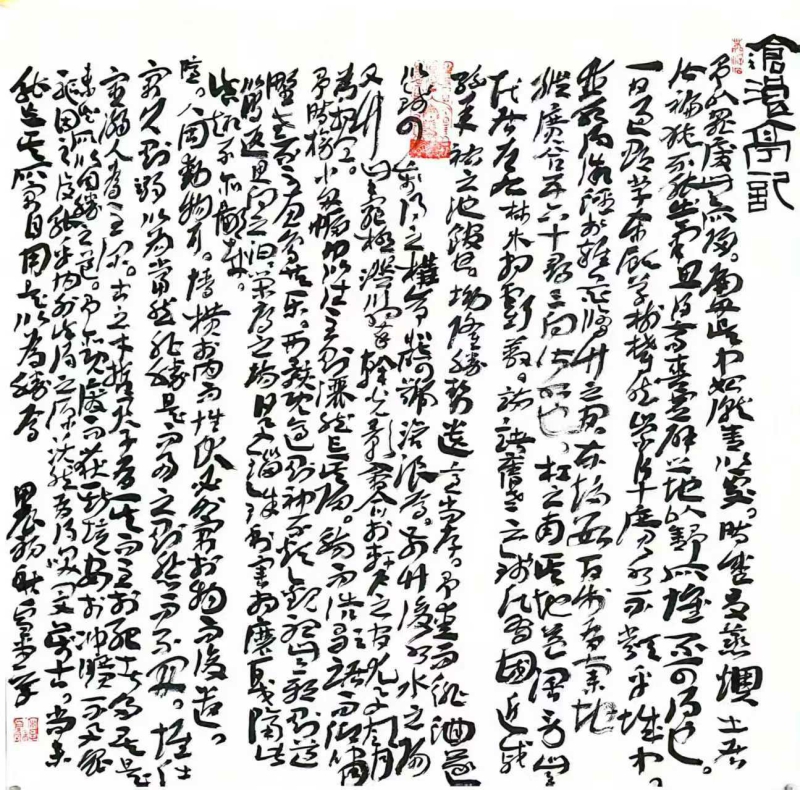 滄浪亭記
予以罪廢無所歸。扁舟吳中始僦舍以處。時盛夏蒸燠土居
皆褊狹不能出氣思得高爽虛辟之地以舒所懷不可得也。
一日過郡學東顧草樹鬱然崇阜廣水不類乎城中。
並水得微徑於雜花修竹之間東趨數百步有棄地
縱廣合五六十尋三向皆水也。杠之南其地益闊旁無
民居左右林木相虧蔽。訪諸舊老云錢氏有國近戚
孫承祐之池館也坳隆勝勢遺意尚存。予愛而徘徊遂
以錢四萬得之構亭北碕號滄浪焉。前竹後水水之陽
又竹無窮極澄川翠幹光影會合於軒戶之間尤與風月
為相宜。
予時榜小舟幅巾以往至則灑然忘其歸。觴而浩歌踞而仰嘯
野老不至魚鳥共樂。形骸既適則神不煩觀聽無邪則道
以明返思向之汩汩榮辱之場日與錙銖利害相磨戛隔此
真趣不亦鄙哉。
噫。人固動物耳。情橫於內而性伏必外寓於物而後遣。
寓久則溺以為當然非勝是而易之則悲而不開。惟仕
宦溺人為至深。古之才哲君子有一失而至於死者多矣是
未知所以自勝之道。予既廢而獲斯境安於沖曠不與眾
驅因之復能乎內外失得之原沃然有得笑閔萬古。尚未
能忘其所寓目用是以為勝焉